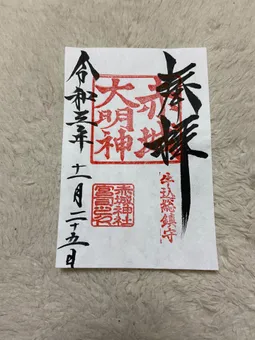 奉拝
牛込総鎮守
赤城
大明神
赤城神社
令和三年 十一月 二十五日